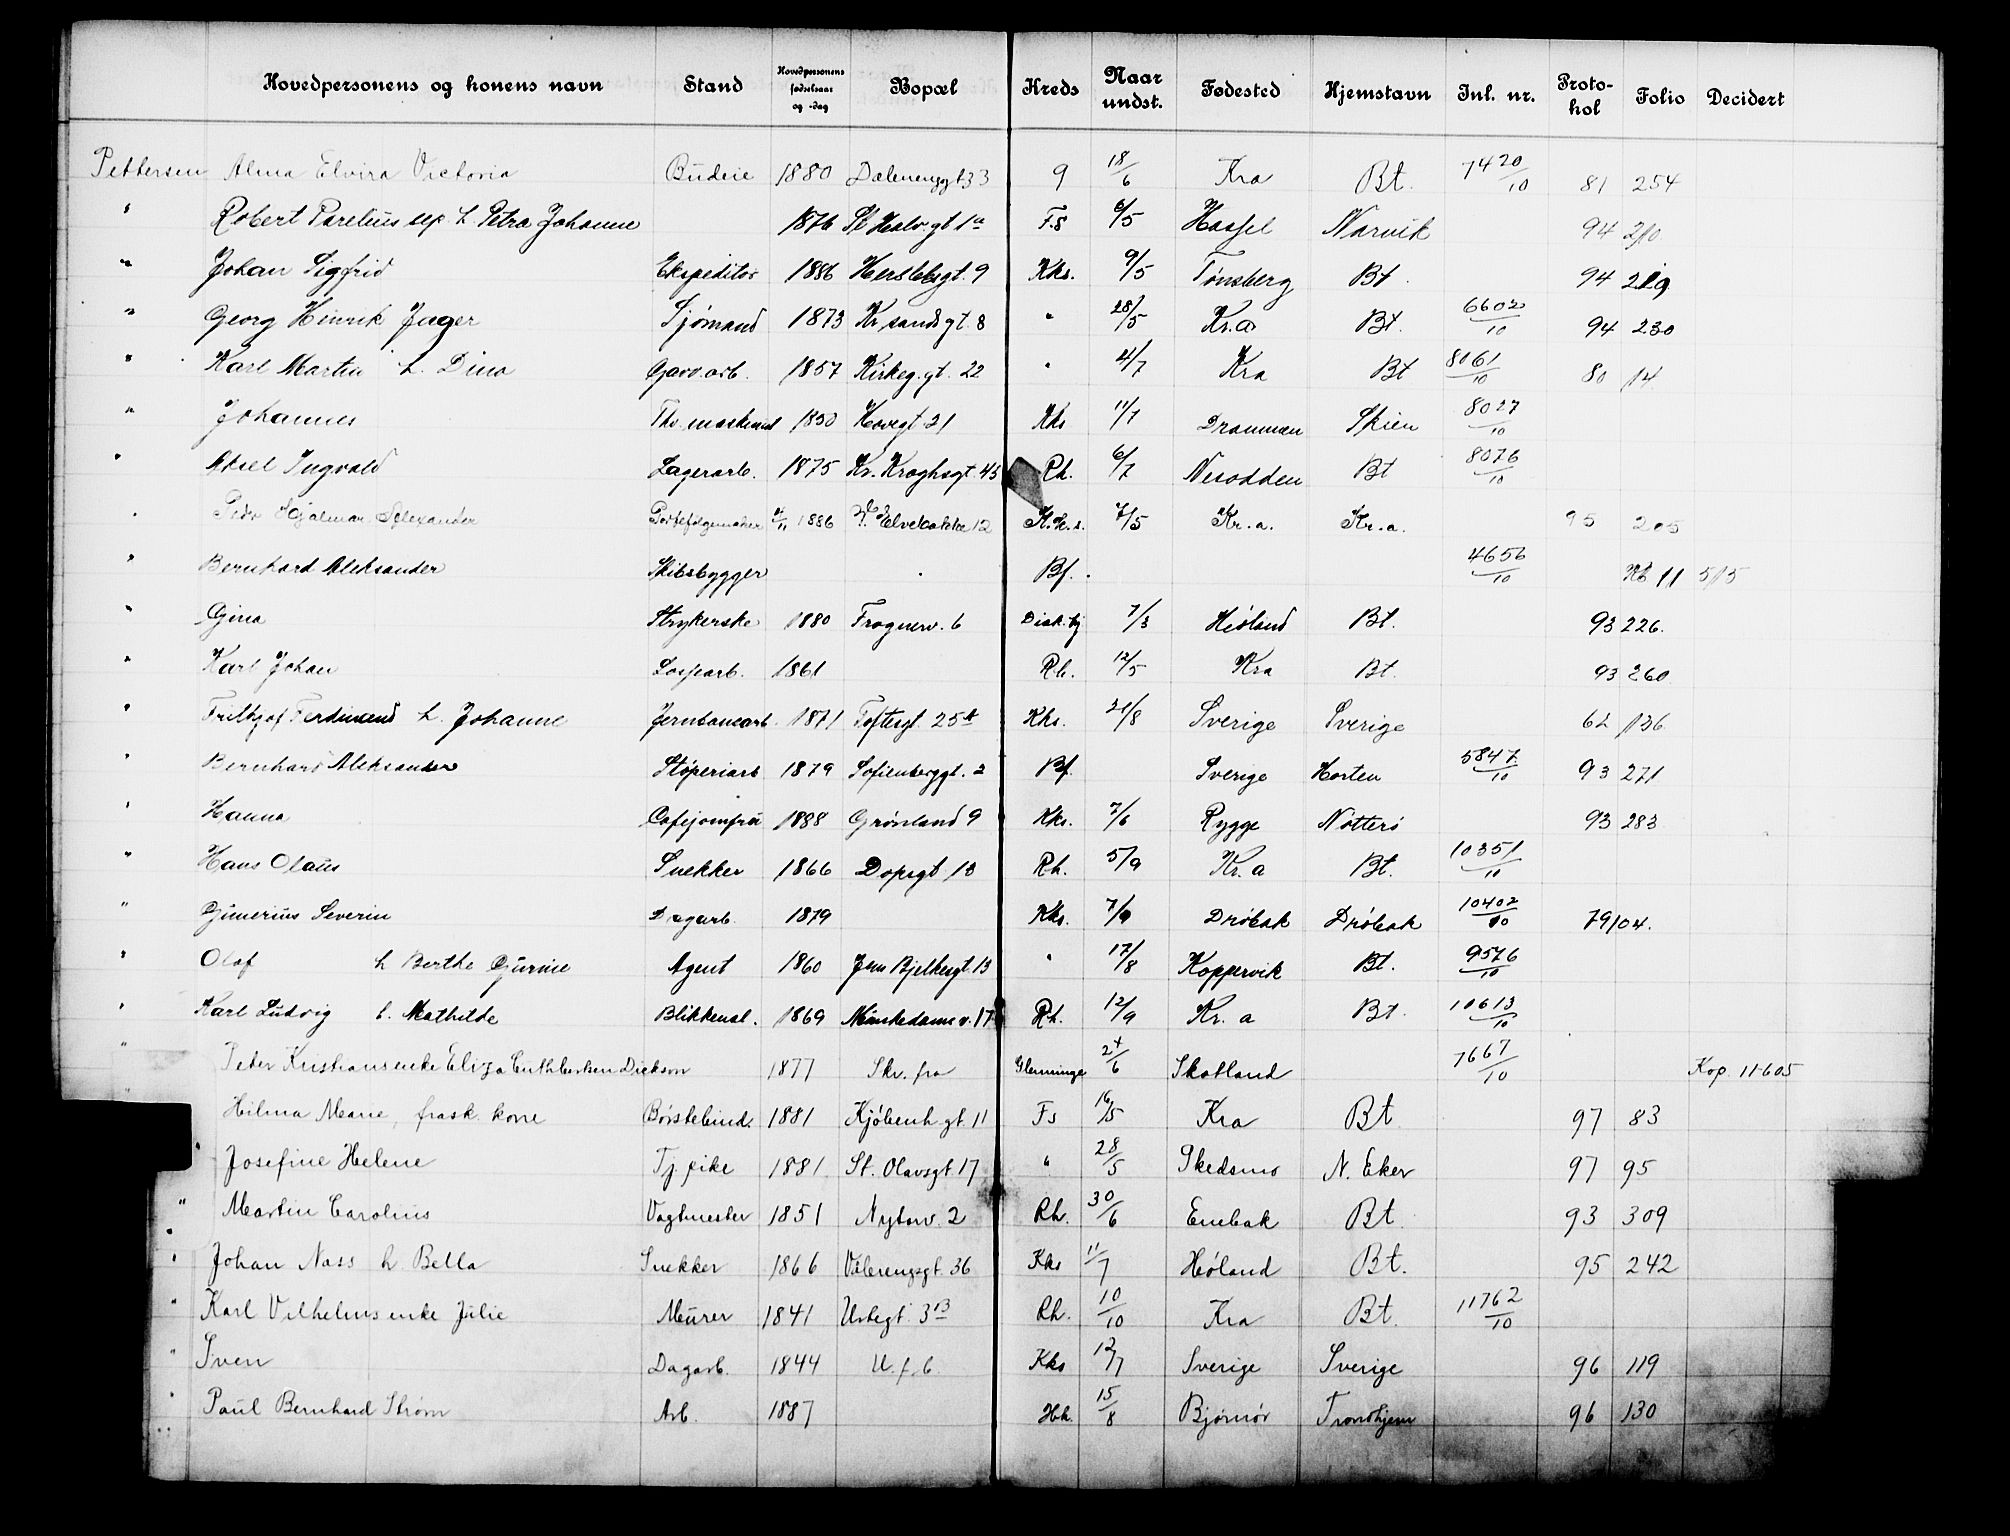 Hovedpersonens og konens navn Stand Hovedpersonens fødselsaar og -dag Bopæl Kreds Naar undst. Fødested Hjemstavn Inl. nr. Protokol Folio Decidert
Pettersen Alma Elvira Victoria Budeie 1880 Dælenenggt 33 9 18/6 Kra Bt. 7420/10 81 254
" Robert Parelius sep h. Petra Johanne 1876 St Halv. gt 1a F.s 6/5 Hassel Narvik 94 210
" Johan Sigfrid Ekspeditør 1886 Herslebsgt. 9 Kks. 9/5 Tønsberg Bt. 94 219
" Georg Hinrik Jager Sjømand 1873 Kr.sands gt. 8 " 28/5 Kr.a Bt. 6602/10 94 230
" Karl Martin h. Dina Garv.arb. 1857 Kirkeg. gt. 22 " 4/7 Kra Bt 8061/10 80 14
" Johannes 1850 Hovegt 21 Kks 11/7 Drammen Skien 8027/10
" Aksel Ingvald Lagerarb. 1875 Kr. Kroghsgt. 45 Rh. 6/7 Nesodden Bt 8076/10
" Peder Hjalmar Alexander Portefølgemaker 1886 Elvebakke 12 K.k.s. 7/5 Kr.a. Kr.a. 95 205
" Bernhard Aleksander Skibsbygger Bf. 4656/10 Kb 11 515
" Gina Strykerske 1880 Frognerv. 6 Diak.hj 7/3 Høland Bt. 93 226.
" Karl Johan Losjearb. 1861 Rh. 12/5 Kra Bt. 93 260
" Frithjof Ferdinand h. Johanne Jernbanearb. 1871 Toftesgt. 25 Kks. 21/8 Sverige Sverige 62 136
" Bernhard Aleksander Støperiarb 1879 Sofienberggt. 2 Bf. Sverige Horten 5847/10 93 271
" Hanna Cafejomfru 1888 Grønland 9 Kks. 7/6 Rygge Nøtterø 93 283
" Hans Olaus Snekker 1866 Dopsgt. 13 Rh. 5/9 Kr.a Bt. 10351/10
" Gunerius Severin Dagarb. 1879 Kks. 7/9 Drøbak Drøbak 10402/10 79 104.
" Olaf h Berthe Gurine Agent 1860 Jens Bjelkesgt. 13 " 17/8 Koppervik Bt. 9576/10
" Karl Ludvig h. Mathilde Blikkensl. 1869 Munkedamsv. 17 Rh. 12/9 Kr.a Bt. 10613/10
" Peter Kristians enke Eliza Cuthbertsen Dickson 1877 Skr. fra Glemminge 24/6 Skotland 7667/10 Kop. 11-605
Hilma Marie, frask. kone Børstebind. 1881 Kjøbenh. gt. 11 Fs 16/5 Kra Bt 97 83
" Josefine Helene Tj.pike 1881 St. Olavsgt. 17 " 28/5 Skedsmo N. Eker 97 95
" Martin Carolius Vagtmester 1851 Nytorv. 2 Rh. 30/6 Enebak Bt. 93 309
" Johan Nass h Bella Snekker 1866 Vålerengsgt. 36 Kks 11/7 Høland Bt. 95 242
" Karl Vilhelms enke Julie Murer 1841 Urtegt. 3B Rh. 10/10 Kra Bt. 11762/10
" Sven Dagarb. 1844 U.f.b Kks 12/7 Sverige Sverige 96 119
" Paul Bernhard Strøm Arb. 1887 Hk. 15/8 Bjørnør Trondhjem 96 130